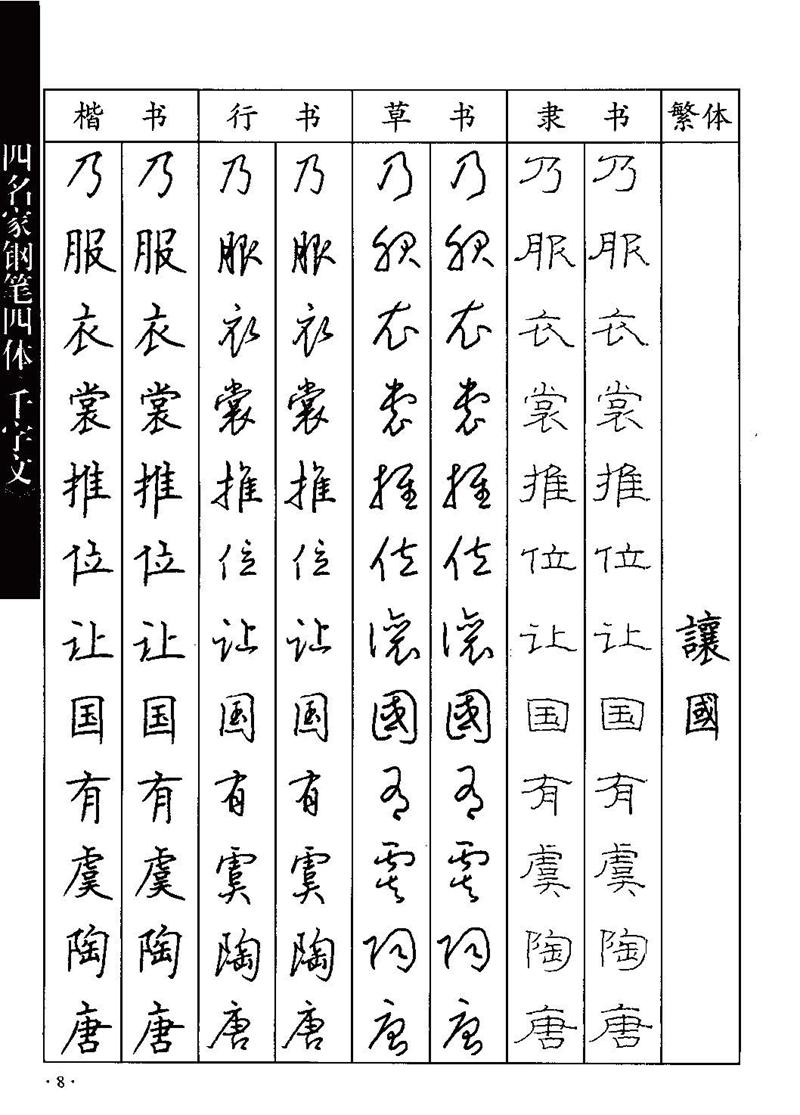 四名家钢笔四体 千字文
楷书
行书
草书
隶书
繁体
乃服衣裳推位让国有虞陶唐
乃服衣裳推位让国有虞陶唐
乃服衣裳推位让国有虞陶唐
乃服衣裳推位让国有虞陶唐
乃服衣裳推位讓國有虞陶唐
乃服衣裳推位讓國有虞陶唐
乃服衣裳推位让国有虞陶唐
乃服衣裳推位让国有虞陶唐
讓國
·8·